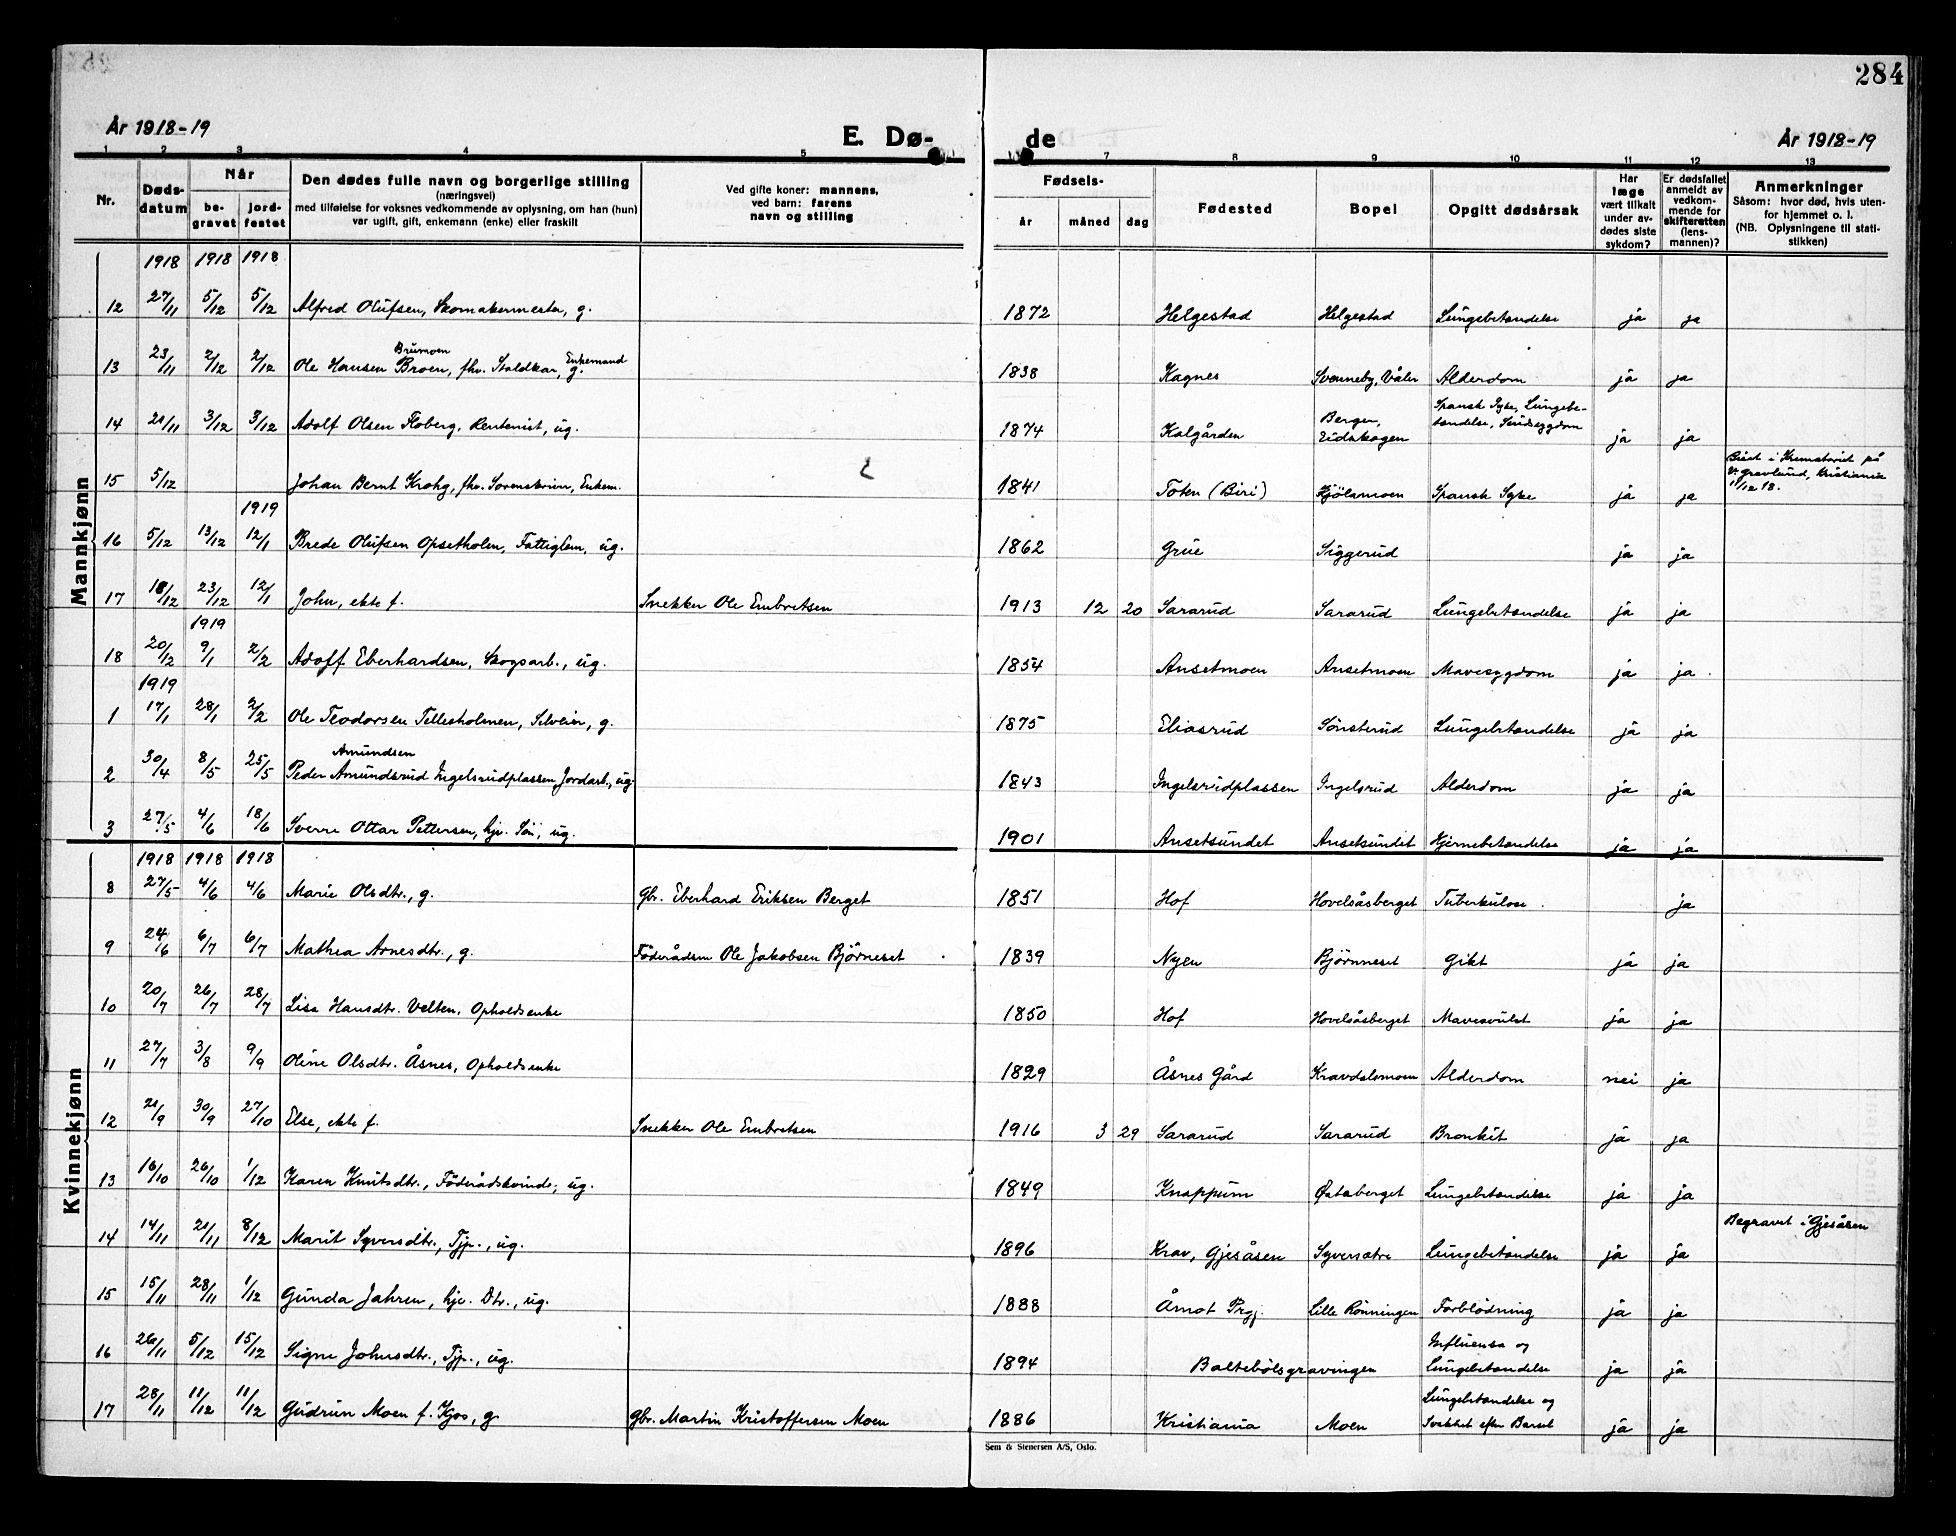 284
År 1918-19
E. Dø-
de
År 1918-19
1 2 3 4 5 7 8 9 10 11 12 13
Nr.
Døds-
datum
Når
be-
gravet
jord-
festet
Den dødes fulle navn og borgerlige stilling
(næringsvei)
med tilføielse for voksnes vedkommende av oplysning, om han (hun)
var ugift, gift, enkemann (enke) eller fraskilt
Ved gifte koner: mannens,
ved barn: farens
navn og stilling
Fødsels-
år måned dag
Fødested
Bopel
Opgitt dødsårsak
Har
læge
vært tilkalt
under av-
dødes siste
sykdom?
Er dødsfallet
anmeldt av
vedkom-
mende for
skifteretten
(lens-
mannen)?
Anmerkninger
Såsom: hvor død, hvis uten-
for hjemmet o. l.
(NB. Oplysningene til stati-
stikken)
Mankjønn
1918 1918 1918
12 27/11 5/12 5/12 Alfred Olufsen, Skomakermester, g. 1872 Helgestad Helgestad Lungebetændelse ja ja
Brumoen Enkemand
13 23/11 2/12 2/12 Ole Hansen Broen, fhv. Staldkar, g. 1838 Kagnes Svenneby, Våler Alderdom ja ja
Bergen, Spansk Syke, Lungebe-
14 21/11 3/12 3/12 Adolf Olsen Floberg, Rentenist, ug. 1874 Kalgården Eidskogen tændelse, Sindssygdom ja ja
Bisat i Krematoriet på
V. gravlund, Kristiania
15 5/12 Johan Bernt Krohg, fhv. Sorenskriver, Enkem. 1841 Toten (Biri) Kjølamoen Spansk Syke ja ja 11/12 18.
1919
16 5/12 13/12 12/1 Brede Olufsen Opsetholen, Fattiglem, ug. 1862 Grue Siggerud ja ja
17 18/12 23/12 12/1 John, ekte f. Snekker Ole Embretsen 1913 12 20 Sararud Sararud Lungebetændelse ja ja
1919
18 20/12 9/1 2/2 Adolf Eberhardsen, Skogsarb., ug. 1854 Ansetmoen Ansetmoen Mavesygdom ja ja
1919
1 17/1 28/1 2/2 Ole Teodorsen Tellesholmen, Selveier, g. 1875 Eliasrud Sønsterud Lungebetændelse ja ja
Amundsen
2 30/4 8/5 25/5 Peder Amundsrud Ingelsrudplassen, Jordarb., ug. 1843 Ingelsrudplassen Ingelsrud Alderdom ja ja
3 27/5 4/6 18/6 Sverre Ottar Pettersen, hjv. Søn, ug. 1901 Ansetsundet Ansetsundet Hjernebetændelse ja ja
Kvinnekjønn
1918 1918 1918
8 27/5 4/6 4/6 Marie Olsdtr., g. Gbr. Eberhard Eriksen Berget 1851 Hof Hovelsåsberget Tuberkulose ja
9 24/6 6/7 6/7 Mathea Arnesdtr., g. Föderådsm Ole Jakobsen Bjørneset 1839 Nyen Bjørnneset Gikt ja ja
10 20/7 26/7 28/7 Lisa Hansdtr. Velten, Opholdsenke 1850 Hof Hovelsåsberget Mavesvulst ja ja
11 27/7 3/8 9/9 Oline Olsdtr. Åsnes, Opholdsenke 1829 Åsnes Gård Kravdalsmoen Alderdom nei ja
12 21/9 30/9 27/10 Else, ekte f. Snekker Ole Embretsen 1916 3 29 Sararud Sararud Bronkit ja ja
13 16/10 26/10 1/12 Karen Knutsdtr., Föderådskvinde, ug. 1849 Knappum Østaberget Lungebetændelse ja ja
14 14/11 21/11 8/12 Marit Syversdtr., Tjp., ug. 1896 Krav, Gjesåsen Syversætre Lungebetændelse ja ja Begravet i Gjesåsen
15 15/11 28/11 1/12 Gunda Jahren, hjv. Dtr., ug. 1888 Åmot Prgj. Lille Rønningen Forblödning ja ja
Influensa og
16 26/11 5/12 15/12 Signe Johnsdtr., Tjp., ug. 1894 Baltebölsgravingen Lungebetændelse ja ja
Lungebetændelse og
17 28/11 11/12 11/12 Gudrun Moen f. Kjos, g. Gbr. Martin Kristoffersen Moen 1886 Kristiania Moen Svekket efter Barsel ja ja
Sem & Stenersen A/S, Oslo.